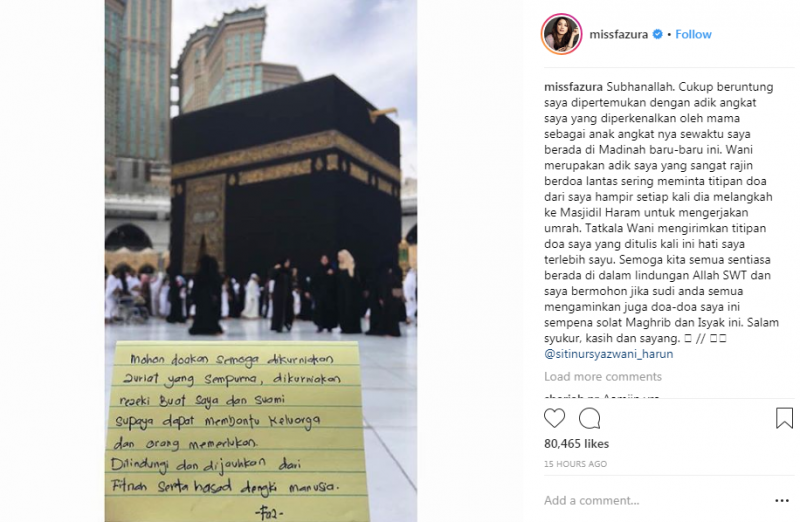 missfazura • Follow
missfazura Subhanallah. Cukup beruntung
saya dipertemukan dengan adik angkat
saya yang diperkenalkan oleh mama
sebagai anak angkat nya sewaktu saya
berada di Madinah baru-baru ini. Wani
merupakan adik saya yang sangat rajin
berdoa lantas sering meminta titipan doa
dari saya hampir setiap kali dia melangkah
ke Masjidil Haram untuk mengerjakan
umrah. Tatkala Wani mengirimkan titipan
doa saya yang ditulis kali ini hati saya
terlebih sayu. Semoga kita semua sentiasa
berada di dalam lindungan Allah SWT dan
saya bermohon jika sudi anda semua
mengaminkan juga doa-doa saya ini
sempena solat Maghrib dan Isyak ini. Salam
syukur, kasih dan sayang. // 
@sitinursyazwani_harun
Load more comments
80,465 likes
15 HOURS AGO
Add a comment...
Mohon doakan semoga dikurniakan
zuriat yang sempurna, dikurniakan
rezeki buat saya dan suami
supaya dapat membantu keluarga
dan orang memerlukan.
Dilindungi dan dijauhkan dari
Fitnah serta hasad dengki manusia.
-Faz-